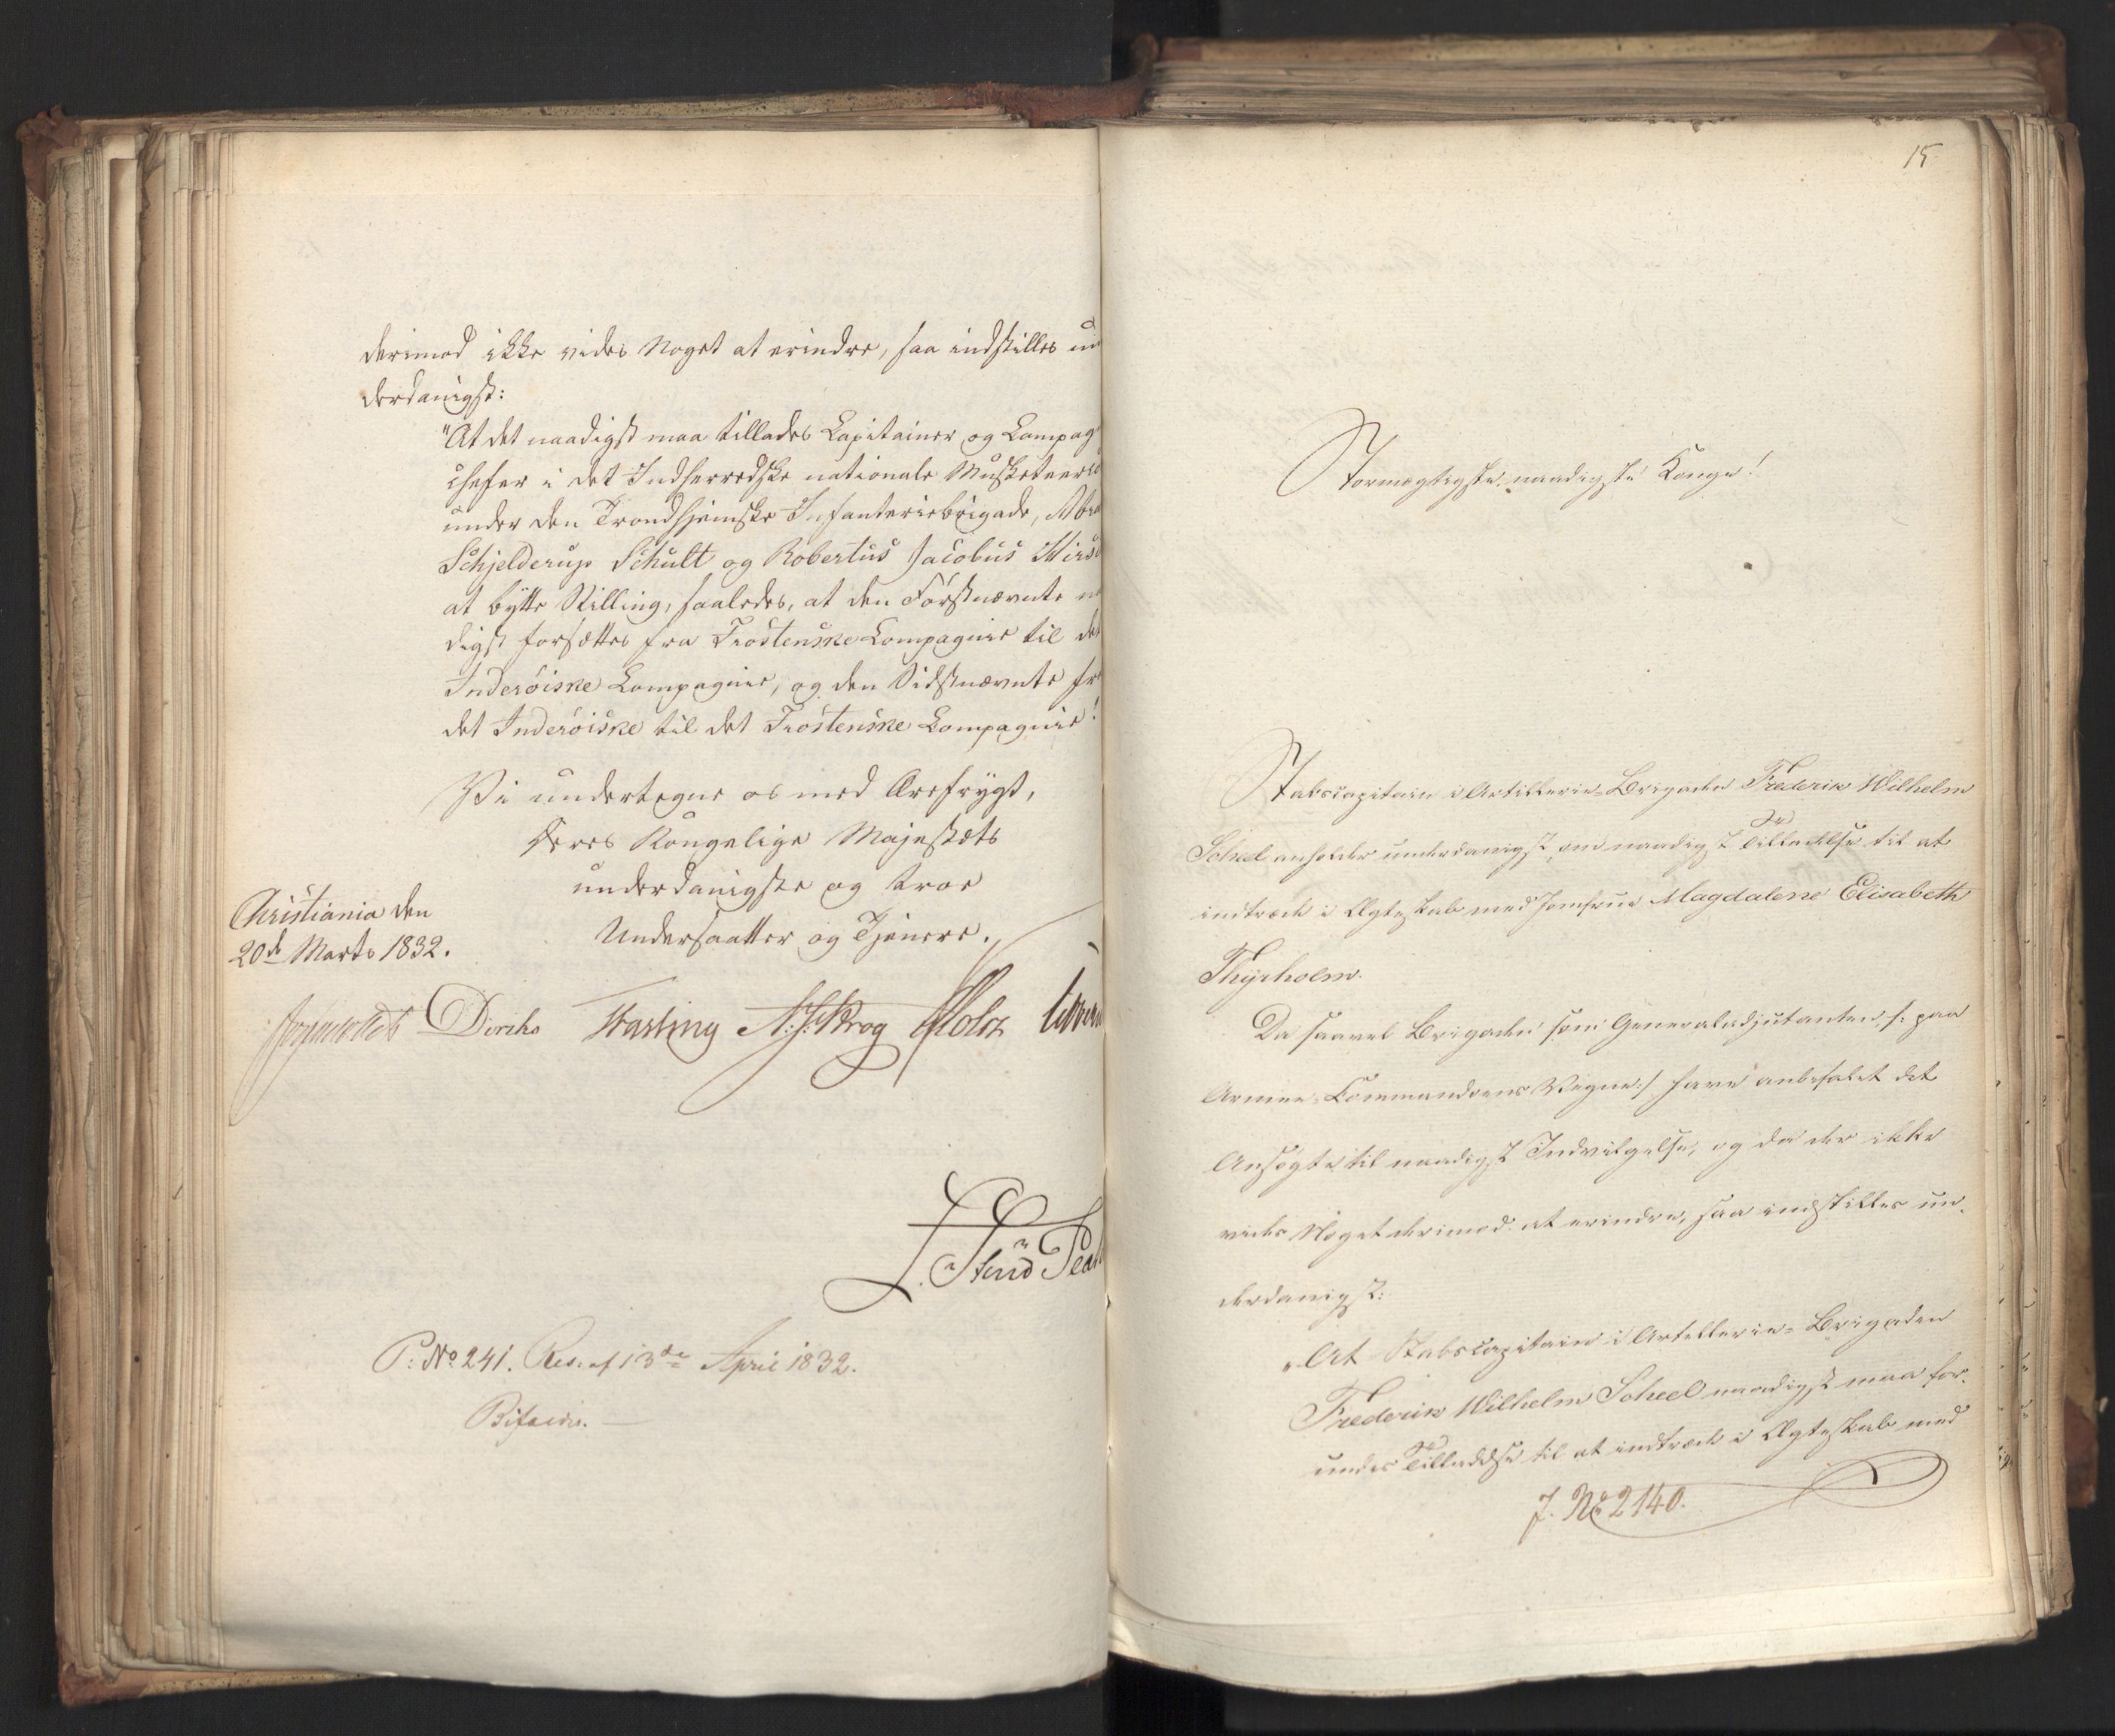 derimod ikke vides Noget at erindre, saa indstilles un
derdanigst:
"At det naadigst maa tillades Capitainer og Compag
chefer i det Indherredske nationale Musketeerco
under den Trondhjemske Infanteriebrigade, Abra
Schjelderup Schult og Robertus Jacobus
at bytte Stilling, saaledes, at den Førstnævnte na
digst forsættes fra Frostenske Compagnie til det
Inderöiske Compagnie, og den Sidstnævnte fra
det Inderöiske til det Frostenske Compagnie!
Vi undertegne os med Ærefrygt,
Deres Kongelige Majestæts
underdanigste og troe
Undersaatter og Tjenere.
Christiania den
20de Marts 1832.
Diriks Fasting Krog Holst
P: No 241. Res: af 13de April 1832.
Bifaldes.
15
Stormægtigste, naadigste Konge!
Stabscapitain i Artillerie-Brigaden Frederik Wilhelm
Scheel anholder underdanigst om naadigst Tilladelse til at
indtræde i Ægteskab med Jomfrue Magdalene Elisabeth
Thyrholm.
Da saavel Brigaden som Generaladjutanten /: paa
Armee-Commandoens Vegne :/ have anbefalet det
Ansøgte til naadigst Indvilgelse, og da der ikke
vides Noget derimod at erindre, saa indstilles un-
derdanigst:
"At Stabscapitain i Artillerie-Brigaden
Frederik Wilhelm Scheel naadigst maa for-
undes Tilladelse til at indtræde i Ægteskab med
J. No 2140.